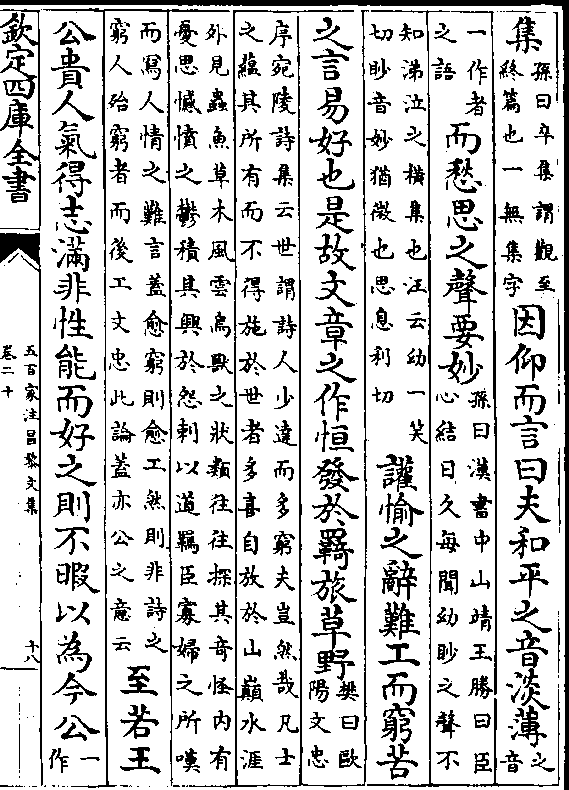 集
孫曰卒集謂觀至
終篇也一無集字
因仰而言曰夫和平之音淡薄
之
音
一作者
之語
而愁思之聲要妙
孫曰漢書中山靖王勝曰臣
心結日久每聞幼眇之聲不
知涕泣之横集也汪云幼一笑
切眇音妙猶微也思息利切
讙愉之辭難工而窮苦
之言易好也是故文章之作恒發於羇旅草野
樊曰歐
陽文忠
序宛陵詩集云世謂詩人少達而多窮夫豈然哉凡士
之蘊其所有而不得施於世者多喜自放於山巔水涯
外見蟲魚草木風雲鳥獸之狀類往往探其奇怪内有
憂思憾憤之鬱積其興於怨刺以道羈臣寡婦之所嘆
而寫人情之難言蓋愈窮則愈工然則非詩之
窮人殆窮者而後工文忠此論蓋亦公之意云
至若王
公貴人氣得志滿非性能而好之則不暇以為今公
一
作
欽定四庫全書
五百家注昌黎文集
卷二十
十八